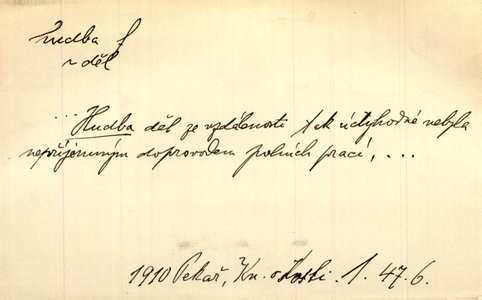 hudba f
z děl
... Hudba děl ze vzdálenosti tak úctyhodné nebyla
nepříjemným doprovodem polních prací, ...
1910 Pekař, Kn. o Kosti. 1. 47. 6.